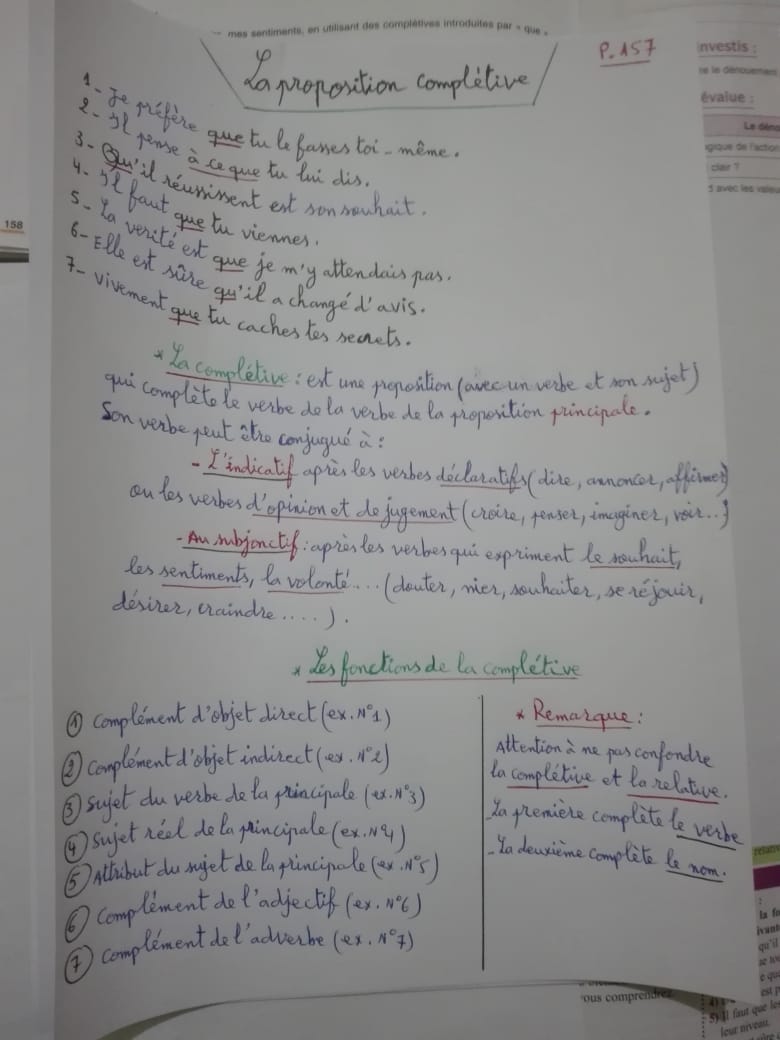 mes sentiments, en utilisant des complétives introduites par « que »
P.157
La proposition complétive
1- Je préfère que tu le fasses toi-même.
2- Il pense à ce que tu lui dis.
3- Qu'il réussissent est son souhait.
4- Il faut que tu viennes.
5- La verité est que je m'y attendais pas.
6- Elle est sûre qu'il a changé d'avis.
7- Vivement que tu caches tes secrets.
* La complétive : est une proposition (avec un verbe et son sujet)
qui complète le verbe de la verbe de la proposition principale.
Son verbe peut être conjugué à :
- L'indicatif après les verbes déclaratifs (dire, annoncer, affirmer)
ou les verbes d'opinion et de jugement (croire, penser, imaginer, voir..)
- Au subjonctif : après les verbes qui expriment le souhait,
les sentiments, la volonté .... (douter, nier, souhaiter, se réjouir,
désirer, craindre ....).
* Les fonctions de la complétive
1 Complément d'objet direct (ex. N°1)
2 Complément d'objet indirect (ex. N°2)
3 Sujet du verbe de la principale (ex. N°3)
4 Sujet réel de la principale (ex. N°4)
5 Attribut du sujet de la principale (ex. N°5)
6 Complément de l'adjectif (ex. N°6)
7 Complément de l'adverbe (ex. N°7)
* Remarque :
Attention à ne pas confondre
la complétive et la relative.
- La première complète le verbe
- La deuxième complète le nom.
158
nvestis :
le dénouement
évalue :
gique de l'action
clair ?
ous comprendrez
la fo
qu'il
est p
5) Il faut que le
leur niveau.